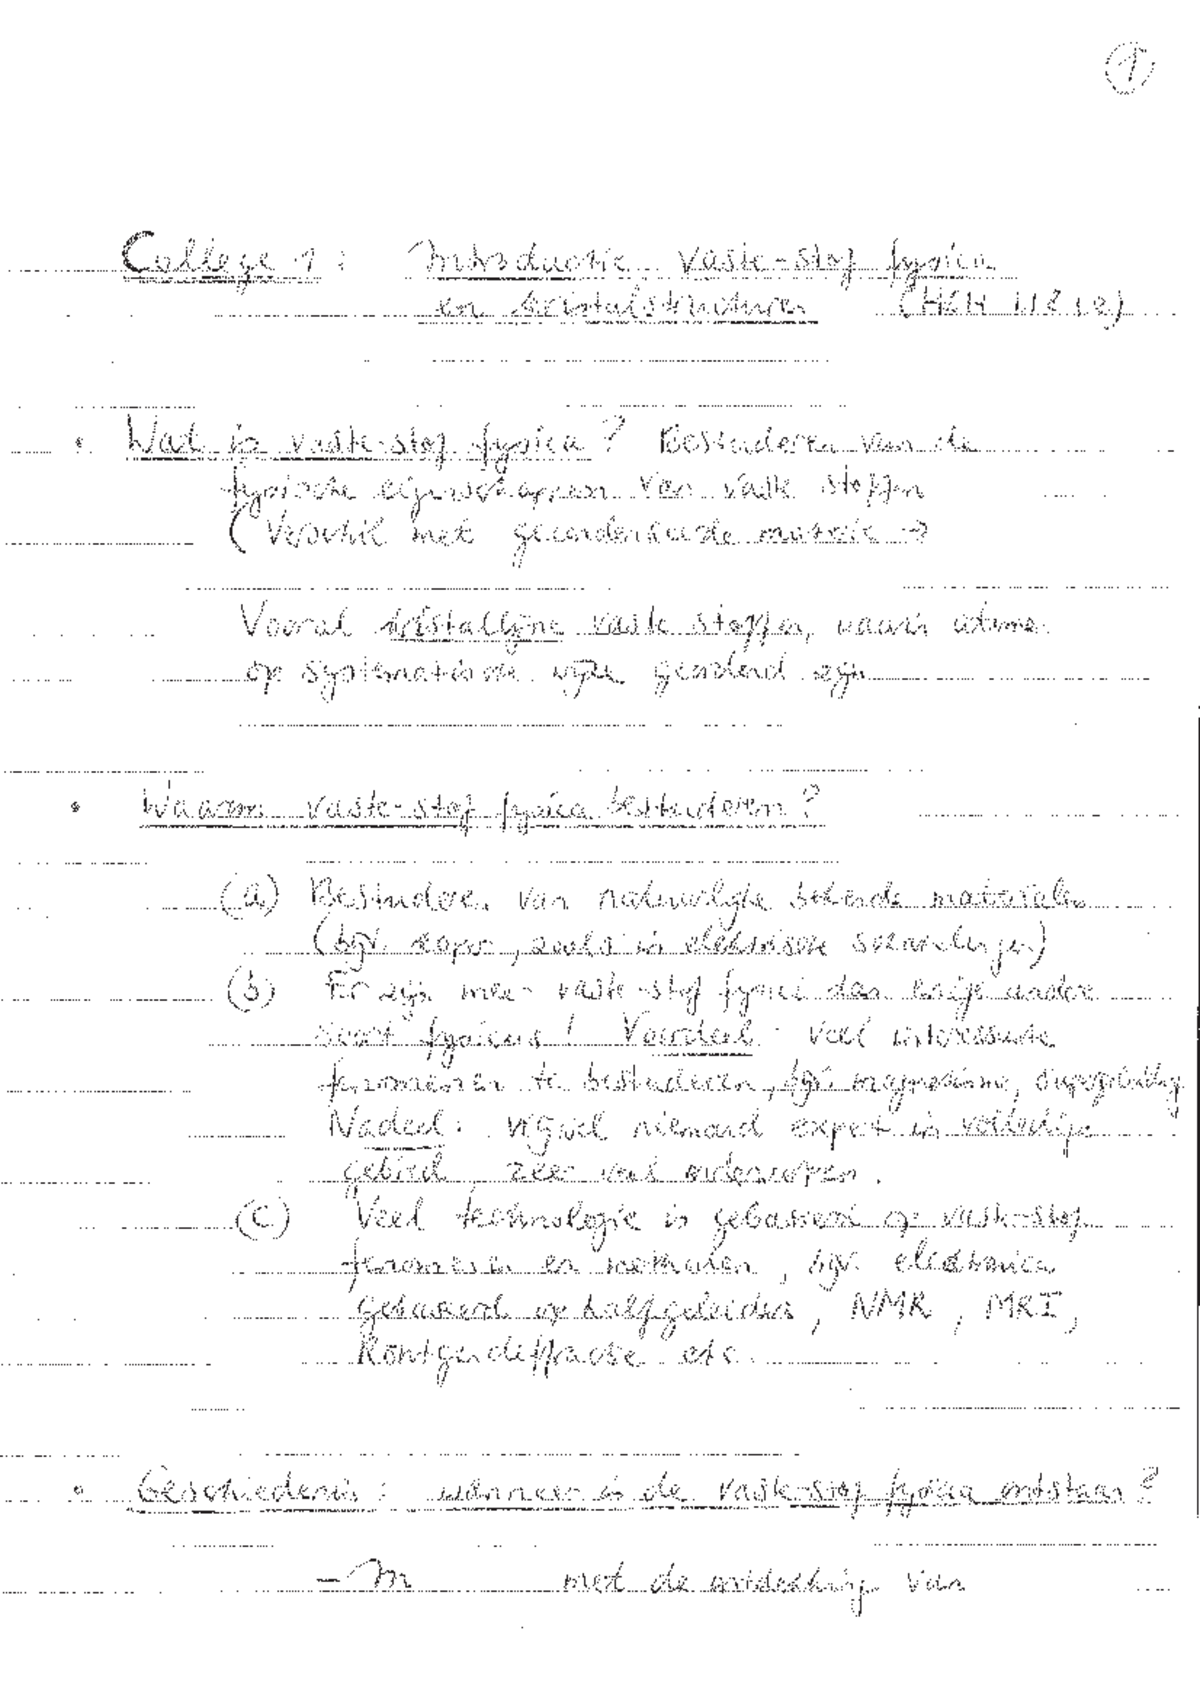 1
College 1: Introductie vaste-stof fysica
en kristalstructuren (H&H 1.1 & 1.2)
• Wat is vaste-stof fysica? Bestuderen van de
fysische eigenschappen van vaste stoffen
(Verschil met gecondenseerde materie →
Vooral kristallijne vaste stoffen, waarin atomen
op systematische wijze geordend zijn
• Waarom vaste-stof fysica bestuderen?
(a) Bestuderen van natuurlijke bekende materialen
(bijv. koper, zoals in elektrische schakelingen)
(b) Er zijn meer vaste-stof fysici dan enige andere
soort fysicus! Voordeel: veel interessante
fenomenen te bestuderen, bijv. magnetisme, supergeleiding
Nadeel: vrijwel niemand expert in volledige
gebied, zeer veel onderwerpen.
(c) Veel technologie is gebaseerd op vaste-stof
fenomenen en methoden, bijv. electronica
gebaseerd op halfgeleiders, NMR, MRI,
Röntgendiffractie etc.
• Geschiedenis: wanneer is de vaste-stof fysica ontstaan?
- In met de ontdekking van